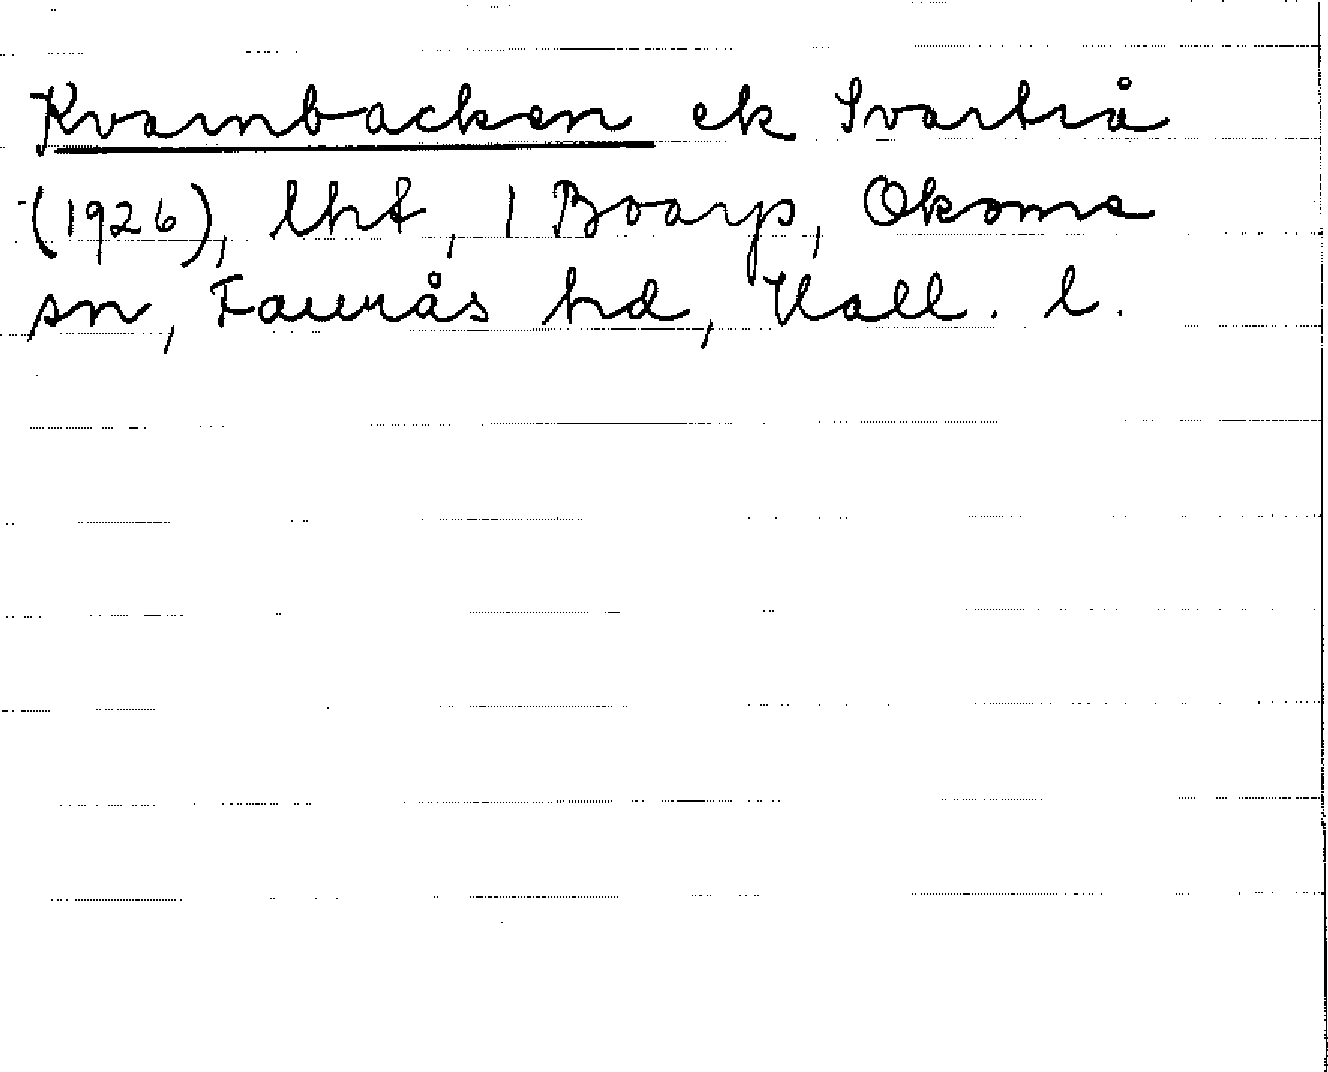 Kvarnbacken ek Svartrå
(1926), lht, 1 Boarp, Okome
sn, Faurås hd, Hall. l.